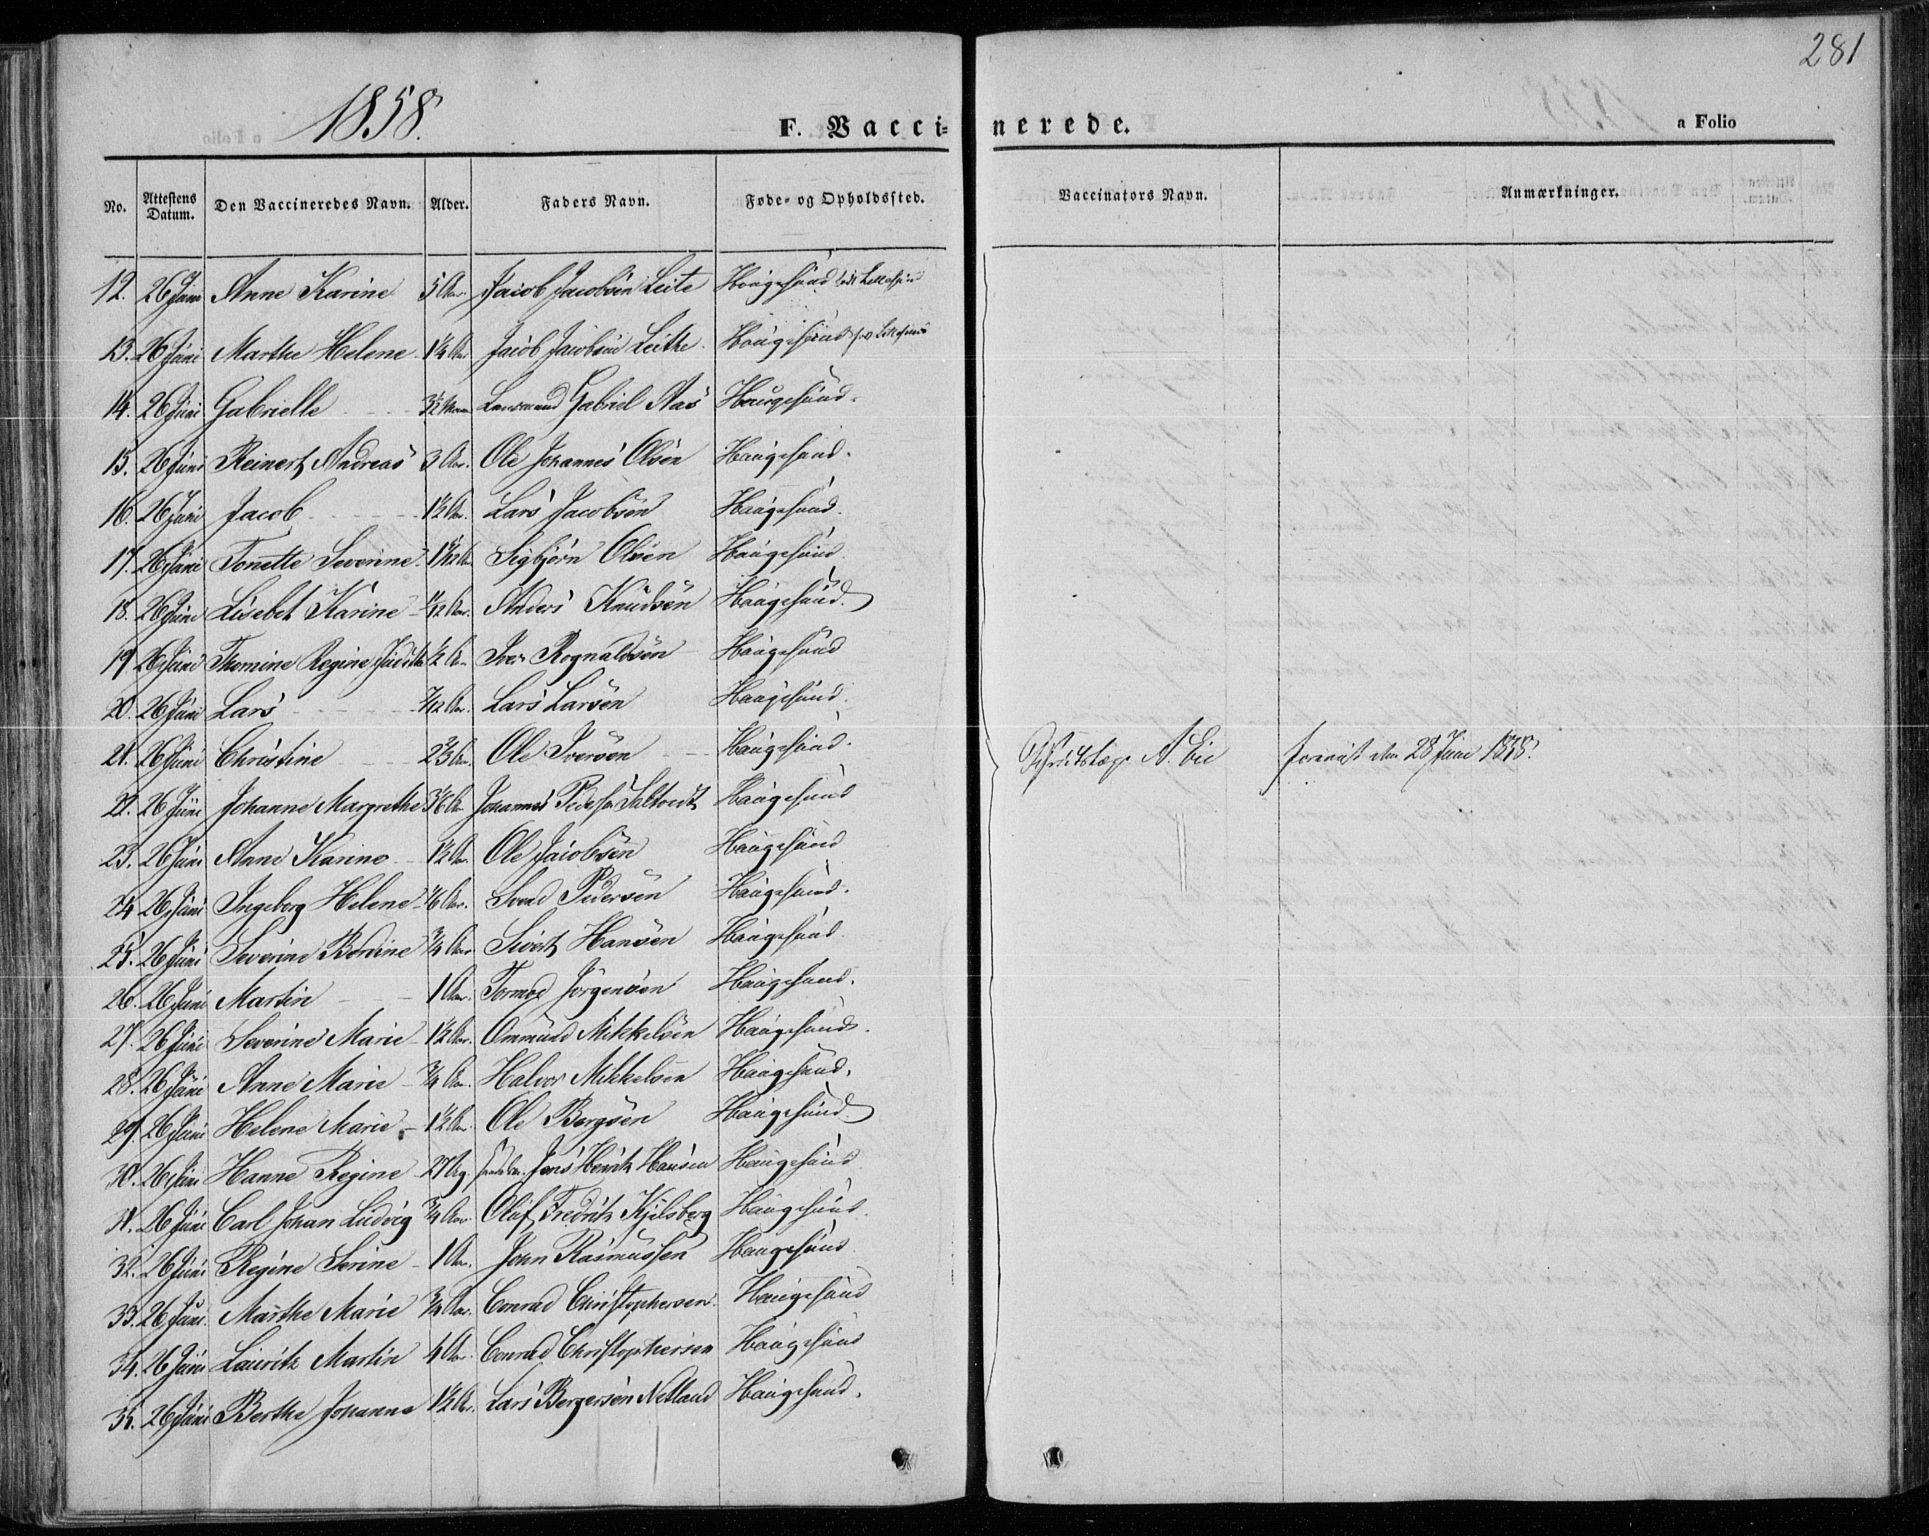 281
1858.
F. Vaccinerede.
a Folio
No. Attestens Datum. Den Vaccineredes Navn. Alder. Faders Navn. Føde- og Opholdssted. Vaccinators Navn. Anmærkninger.
12. 26 Juni Anne Karine 5 Aar. Jacob Jacobsen Leite Haugesund
13. 26 Juni Marthe Helene 1¼ Aar Jacob Jacobsen Leithe. Haugesund
14. 26 Juni Gabrielle 3½ Gabriel Aas Haugesund.
15. 26 Juni Reinert Andreas 3 Aar. Ole Johannes Olsen Haugesund.
16. 26 Juni Jacob 1½ Aar. Lars Jacobsen Haugesund.
17. 26 Juni Tonette Severine. Sigbjørn Olsen Haugesund.
18. 26 Juni Lisebet Karine Anders Knudsen Haugesund.
19. 26 Juni Thomine Regine ½ Aar Iver Rognaldsen Haugesund
20. 26 Juni Lars 7/12 Aar. Lars Larsen Haugesund.
21. 26 Juni Christine 2⅔ Aar Ole Iversen Haugesund. Distriktslæge A. Lie forevist den 28 Juni 1858.
22. 26 Juni Johanne Margrethe Johannes Haugesund
23. 26 Juni Anne Karine 1½ Aar. Ole Jacobsen Haugesund
24. 26 Juni Ingeborg Helene Aar. Svend Pedersen Haugesund.
25. 26 Juni Severine Berdine ¾ Aar Sivert Hansen Haugesund.
26. 26 Juni Martin 1 Aar. Tormod Jørgensen Haugesund.
27. 26 Juni Severine Marie 1½ Aar. Ommund Mikkelsen Haugesund.
28. 26 Juni Anne Marie ¾ Aar. Halvor Mikkelsen Haugesund.
29. 26 Juni Helene Marie 1½ Aar. Ole Bergsen Haugesund.
30. 26 Juni Hanne Regine 27 Jens Henrik Hansen Haugesund
31. 26 Juni Carl Johan Ludvig ¾ Aar. Oluf Fredrik Kjelsberg Haugesund.
32. 26 Juni Regine Serine 1 Aar. John Rasmussen Haugesund
33. 26 Juni. Marthe Marie ¾ Aar. Conrad Christophersen. Haugesund
34. 26 Juni Lauritz Martin 4 Aar. Conrad Christophersen Haugesund
35. 26 Juni Berthe Johanne 1½ Aar. Lars Bergersen Netland Haugesund.